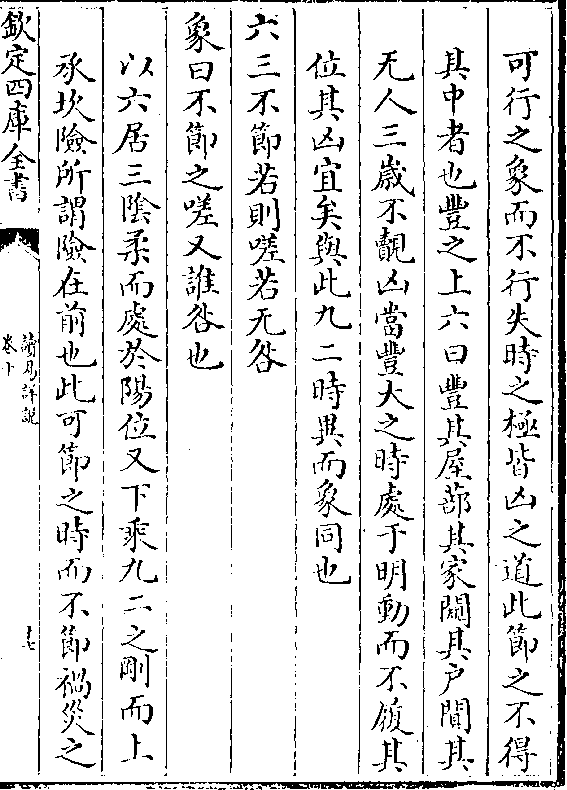 可行之象而不行失時之極皆凶之道此節之不得
其中者也豐之上六曰豐其屋蔀其家闚其户闃其
无人三歳不覿凶當豐大之時處于明動而不履其
位其凶宜矣與此九二時異而象同也
六三不節若則嗟若无咎
象曰不節之嗟又誰咎也
以六居三陰柔而處於陽位又下乘九二之剛而上
承坎險所謂險在前也此可節之時而不節禍災之
欽定四庫全書
讀易詳說
卷十